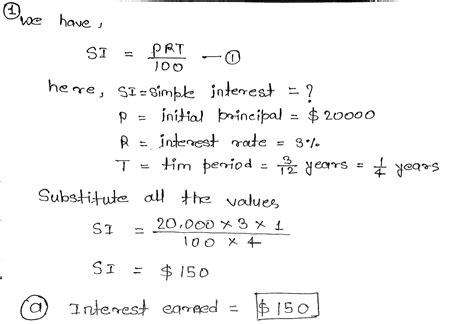 ① we have,
SI = PRT / 100 — ①
here, SI = simple interest = ?
P = initial principal = $20000
R = interest rate = 3%
T = tim period = 3/12 years = 1/4 years
Substitute all the values,
SI = 20,000 × 3 × 1 / 100 × 4
SI = $150
ⓐ Interest earned = $150